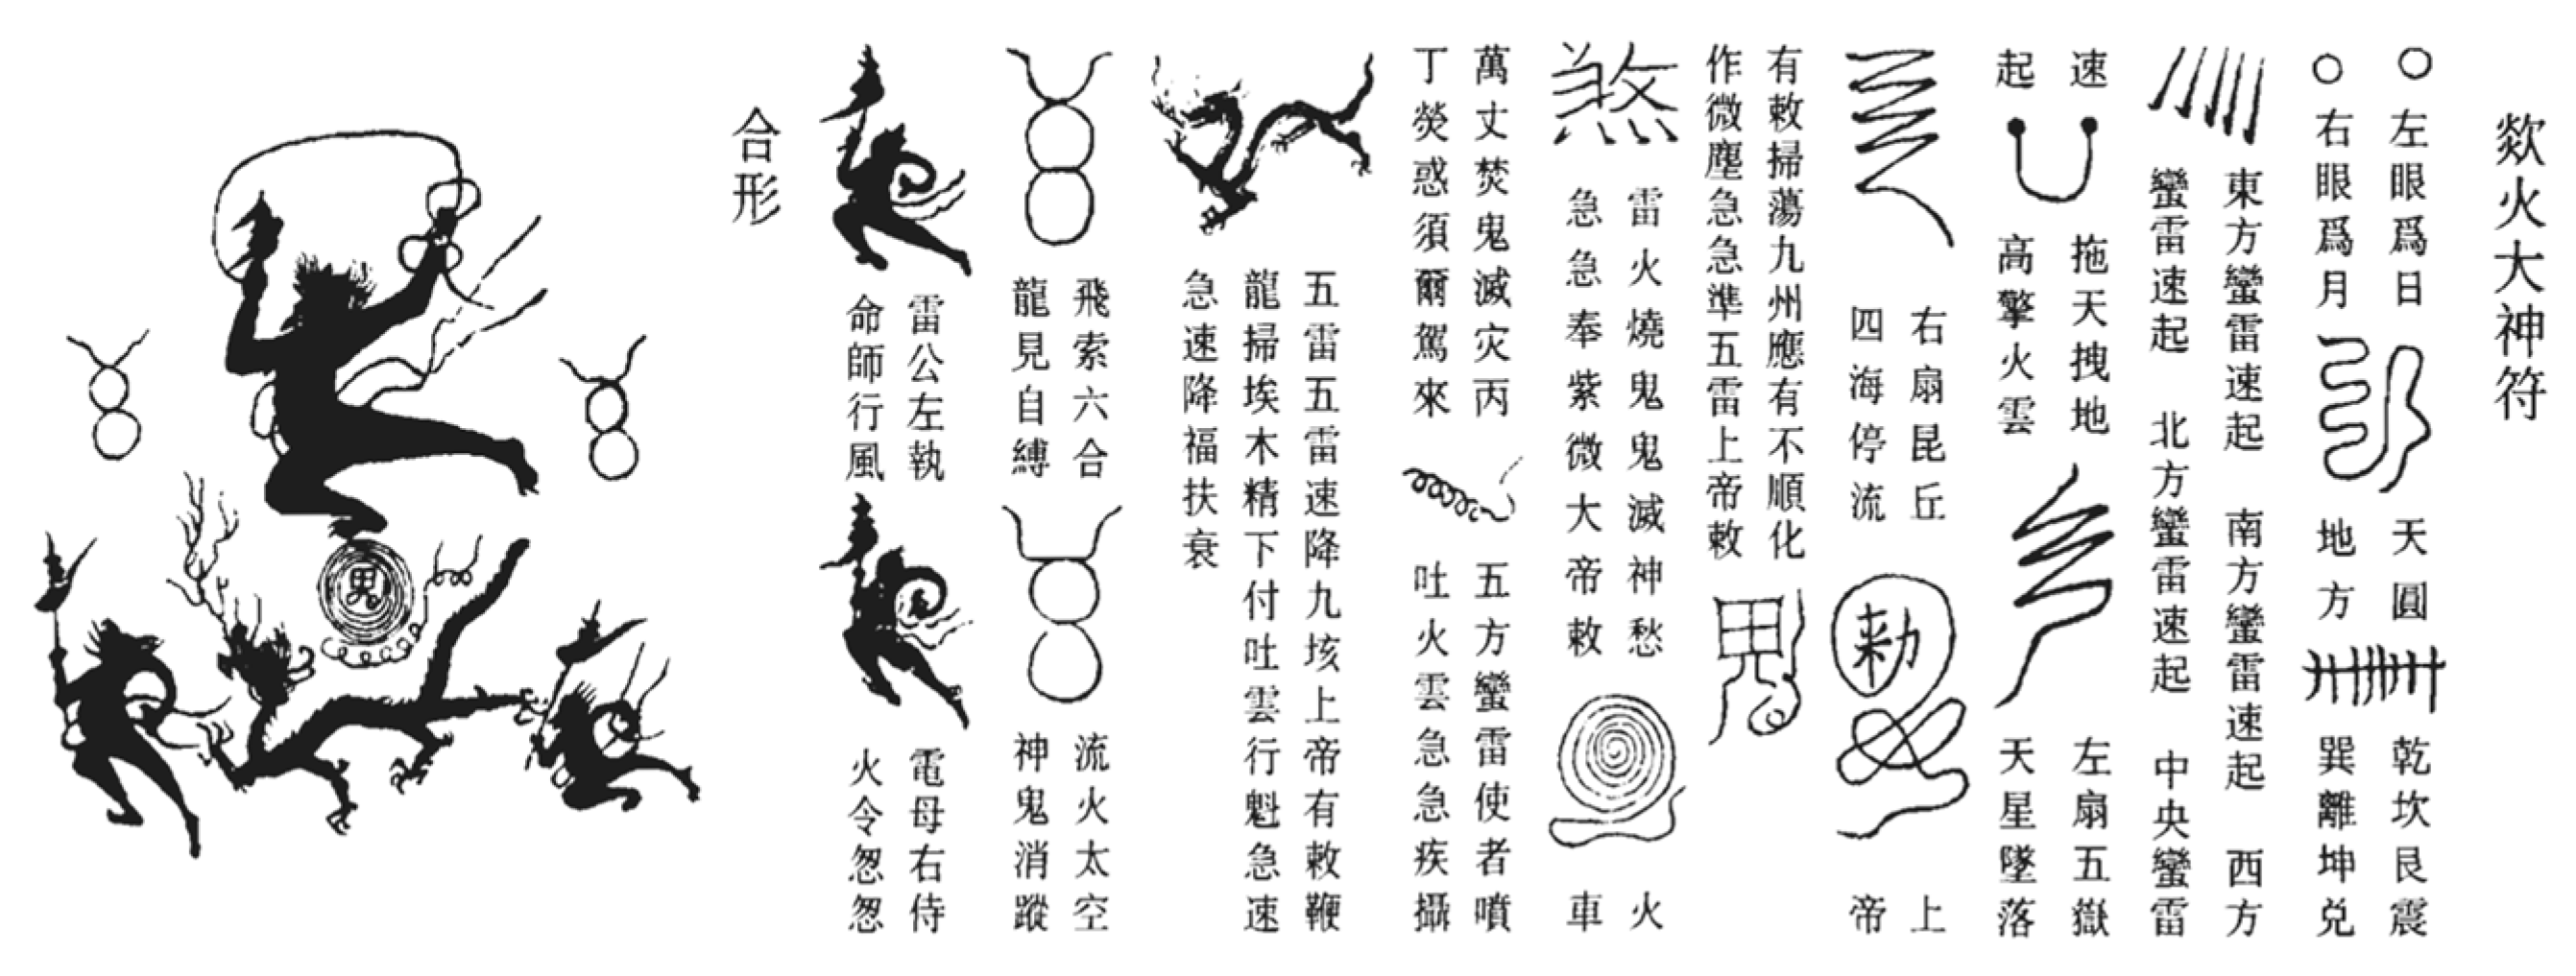 欻火大神符
左眼爲日
右眼爲月
天圓
地方
乾坎艮震
巽離坤兌
東方蠻雷速起　南方蠻雷速起　西方
蠻雷速起　北方蠻雷速起　中央蠻雷
速
起
拖天拽地
高擎火雲
左扇五嶽
天星墜落
右扇昆丘
四海停流
勅
上
帝
有敕掃蕩九州應有不順化
作微塵急急準五雷上帝敕
煞
雷火燒鬼鬼滅神愁
急急奉紫微大帝敕
火
車
萬丈焚鬼滅灾丙
丁熒惑須爾駕來
五方蠻雷使者噴
吐火雲急急疾攝
五雷五雷速降九垓上帝有敕鞭
龍掃埃木精下付吐雲行魁急速
急速降福扶衰
飛索六合
龍見自縛
流火太空
神鬼消蹤
雷公左執
命師行風
電母右侍
火令怱怱
合形